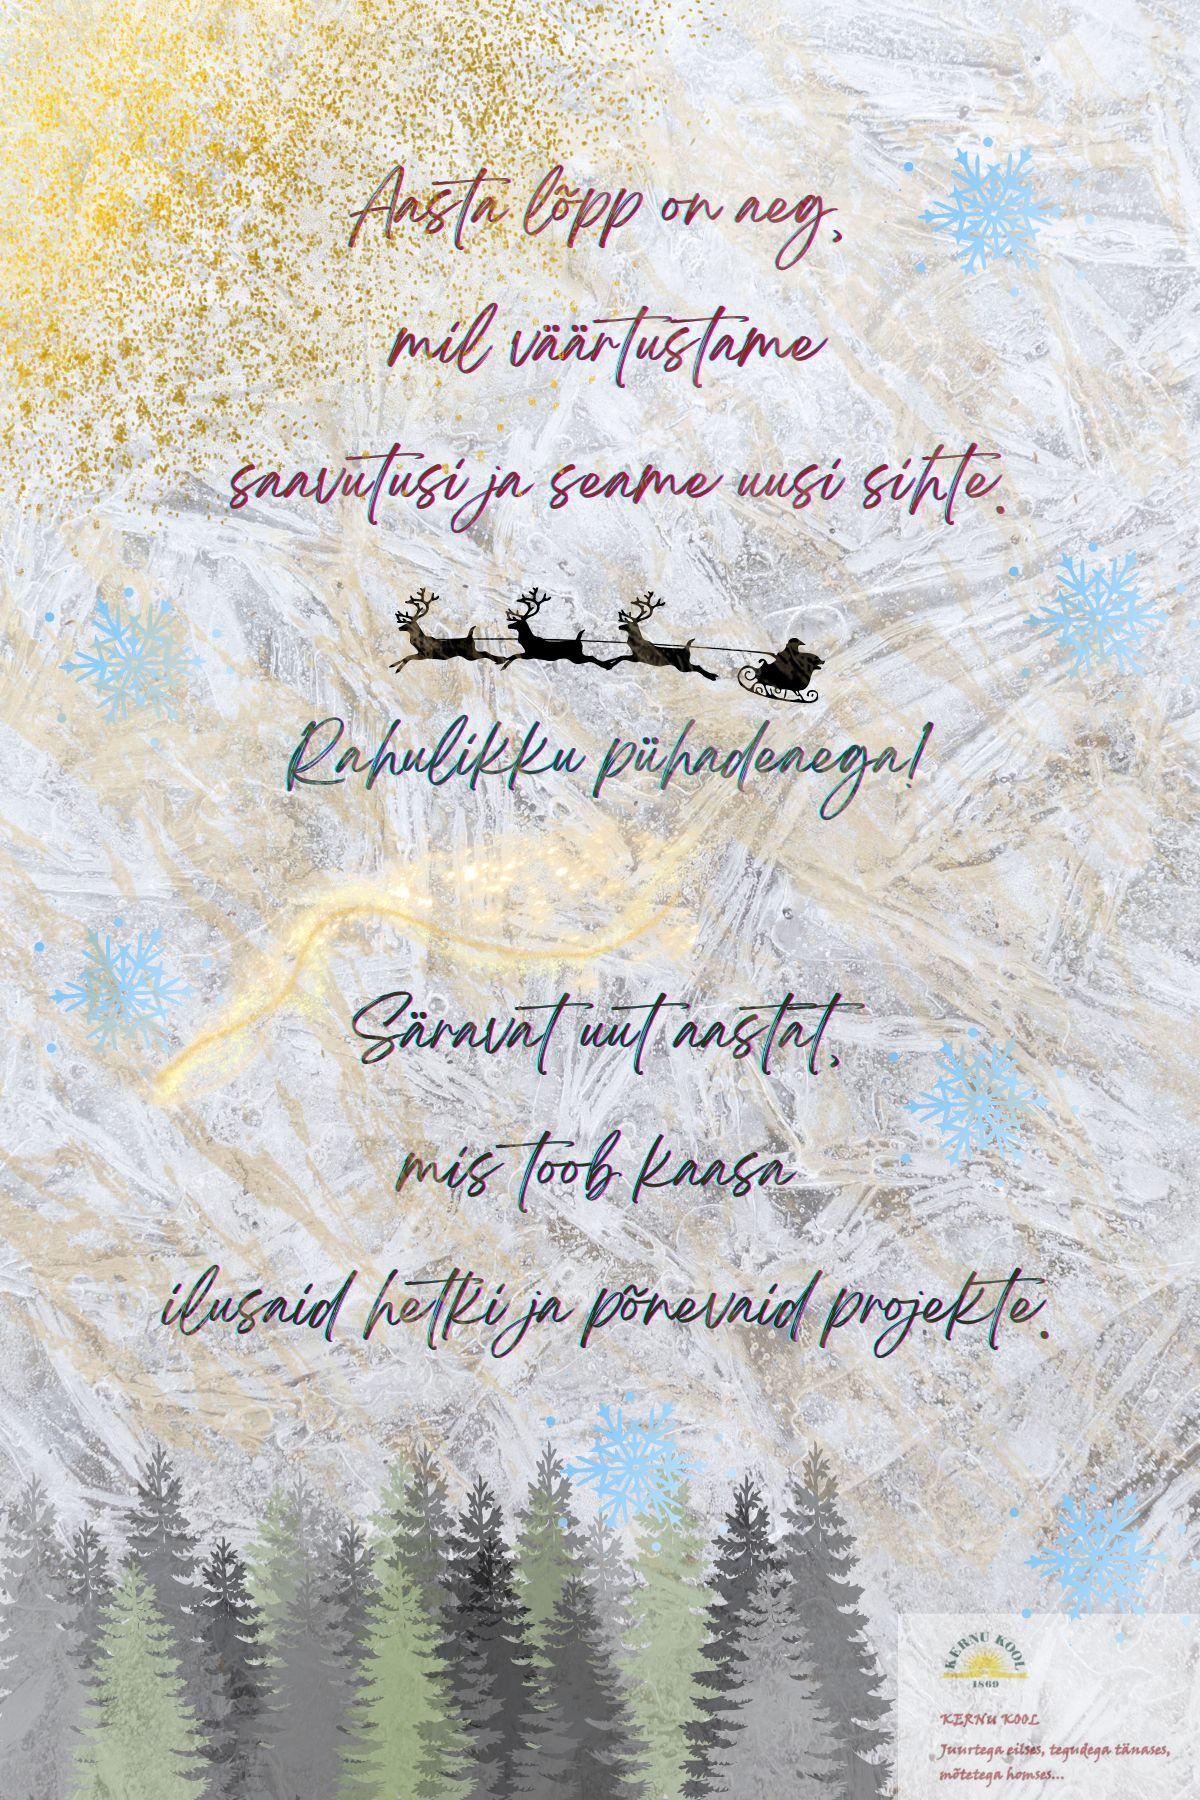 Aasta lõpp on aeg,
mil väärtustame
saavutusi ja seame uusi sihte.
Rahulikku pühadeaega!
Säravat uut aastat,
mis toob kaasa
ilusaid hetki ja põnevaid projekte.
KERNU KOOL
1869
KERNU KOOL
Juurtega eilses, tegudega tänases,
mõtetega homses...